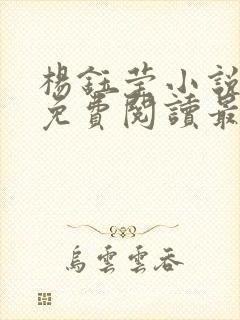 楊鈺瑩小說
免費閱讀最
烏雲雲吞